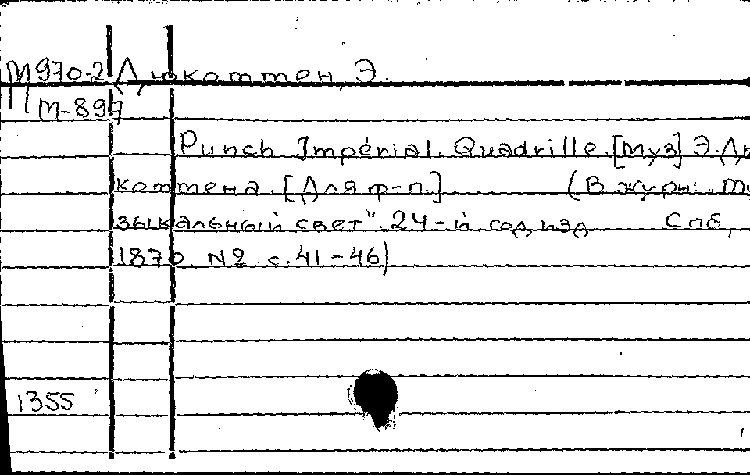 М970-2 Дюкоммен, Э.
М-897
Punch Impérial. Quadrille. [Муз] Э. Дю
коммена. [Для ф-п.] (В журн. "Му
зыкальный свет" 24-й год изд Спб,
1870 N2 с. 41-46)
1355